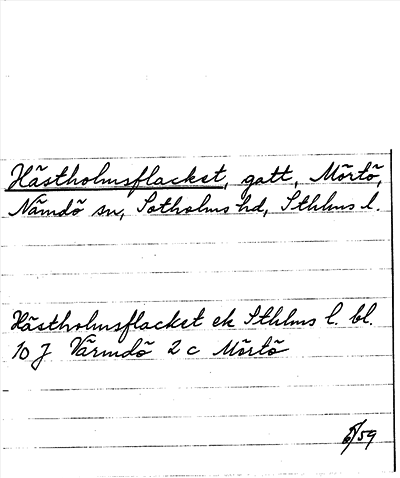 Hästholmsflacket, gatt, Mörtö,
Nämdö sn, Sotholms hd, Sthlms l.
Hästholmsflacket ek Sthlms l. bl.
10 J Värmdö 2 c Mörtö
/59